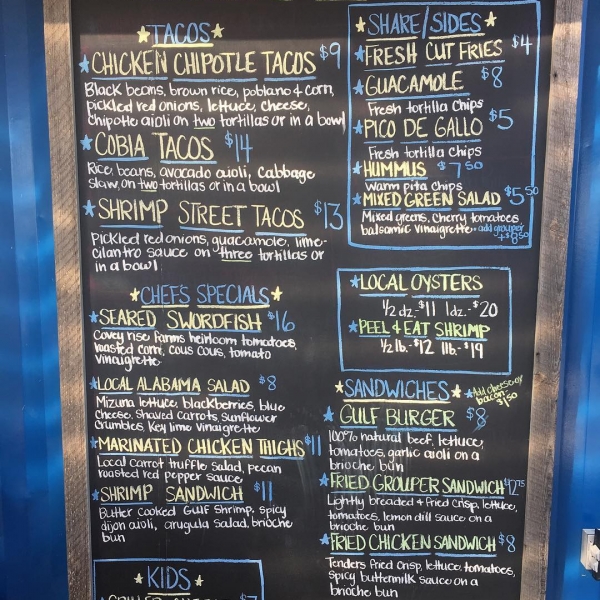 TACOS
CHICKEN CHIPOTLE TACOS $9
Black beans, brown rice, poblano & corn,
pickled red onions, lettuce, cheese,
Chipotle aioli on two tortillas or in a bowl
COBIA TACOS $14
Rice, beans, avocado aioli, Cabbage
Slaw, on two tortillas or in a bowl
SHRIMP STREET TACOS $13
Pickled red onions, guacamole, lime-
cilantro sauce on three tortillas or
in a bowl
CHEFS SPECIALS
SEARED SWORDFISH $16
Covey rise Farms heirloom tomatoes,
roasted corn, cous cous, tomato
Vinaigrette
LOCAL ALABAMA SALAD $8
Mizuna lettuce, blackberries, blue
Cheese, Shaved Carrots, sunflower
Crumbles, Key lime Vinaigrette
MARINATED CHICKEN THIGHS $11
Local Carrot truffle salad, pecan
roasted red pepper sauce
SHRIMP SANDWICH $11
Butter cooked Gulf Shrimp, spicy
dijon aioli, arugula salad, brioche
bun
KIDS
SHARE/SIDES
FRESH CUT FRIES $4
GUACAMOLE $8
Fresh tortilla chips
PICO DE GALLO $5
Fresh tortilla chips
HUMMUS $7.50
Warm pita chips
MIXED GREEN SALAD $5.50
Mixed greens, Cherry tomatoes
balsamic Vinaigrette - add grouper
+$8.50
LOCAL OYSTERS
1/2 dz. - $11 1dz. - $20
PEEL & EAT SHRIMP
1/2 lb. - $12 1lb. - $19
SANDWICHES Add cheese or
bacon -
$1.50
GULF BURGER $8
100% natural beef, lettuce,
tomatoes, garlic aioli on a
brioche bun
FRIED GROUPER SANDWICH $12.75
Lightly breaded & fried Crisp, lettuce,
tomatoes, lemon dill sauce on a
brioche bun
FRIED CHICKEN SANDWICH $8
Tenders fried crisp, lettuce, tomatoes,
Spicy buttermilk sauce on a
brioche bun